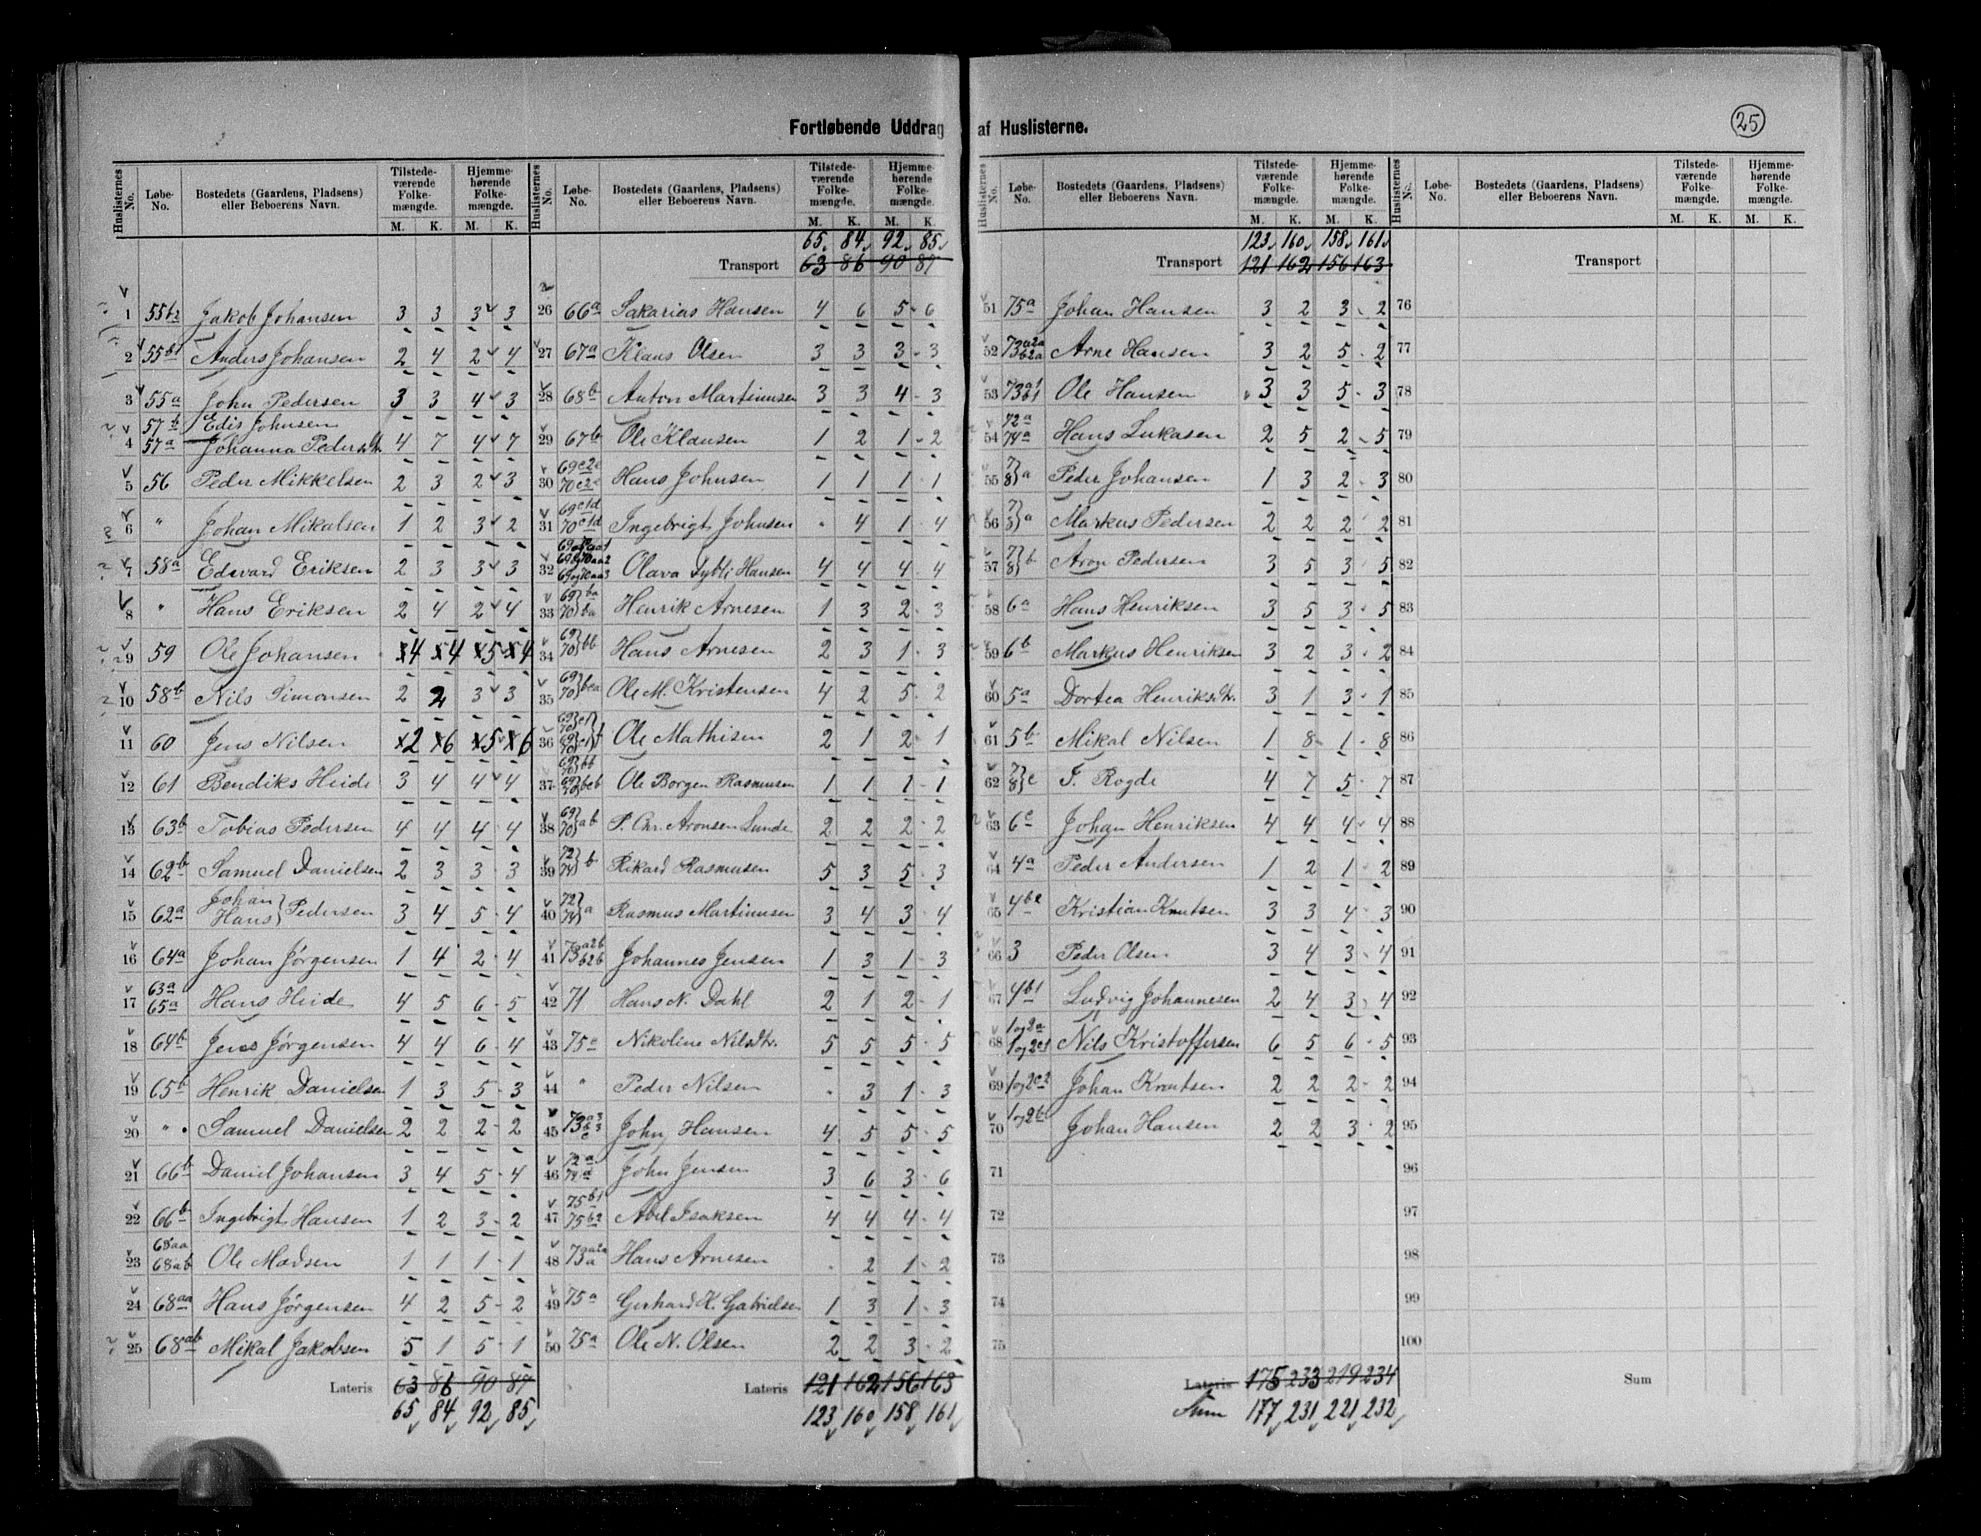 Fortløbende Uddrag af Huslisterne.
25
Huslisternes No. Løbe-No. Bostedets (Gaardens, Pladsens) eller Beboerens Navn. Tilstedeværende Folkemængde. M. K. Hjemmehørende Folkemængde. M. K.
1 55b2 Jakob Johansen 3 3 3 3
2 55b1 Anders Johansen 2 4 2 4
3 55a John Pedersen 3 3 4 3
57b Edis Johnsen
4 57a Johanna Pedersdtr. 4 7 4 7
5 56 Peder Mikkelsen 2 3 2 3
6 " Johan Mikalsen 1 2 3 2
7 58a Edvard Eriksen 2 3 3 3
8 " Hans Eriksen 2 4 2 4
9 59 Ole Johansen x4 x4 x5 x4
10 58b Nils Simonsen 2 2 3 3
11 60 Jens Nilsen x2 x6 x5 x6
12 61 Bendiks Heide 3 4 4 4
13 63b Tobias Pedersen 4 4 4 4
14 62b Samuel Danielsen 2 3 3 3
15 62a Johan Hans } Pedersen 3 4 5 4
16 64a Johan Jørgensen 1 4 2 4
17 63a 65a Hans Heide 4 5 6 5
18 64b Jens Jørgensen 4 4 6 4
19 65b Henrik Danielsen 1 3 5 3
20 " Samuel Danielsen 2 2 2 2
21 66b Daniel Johansen 3 4 5 4
22 66b Ingebrigt Hansen 1 2 3 2
23 68aa 68ab Ole Madsen 1 1 1 1
24 68aa Hans Jørgensen 4 2 5 2
25 68ab Mikal Jakobsen 5 1 5 1
Lateris 63 86 90 87
65 84 92 85
Huslisternes No. Løbe-No. Bostedets (Gaardens, Pladsens) eller Beboerens Navn. Tilstedeværende Folkemængde. M. K. Hjemmehørende Folkemængde. M. K.
65 84 92 85
Transport 63 86 90 87
26 66a Sakarias Hansen 4 6 5 6
27 67a Klaus Olsen 3 3 3 3
28 68b Anton Martinusen 3 3 4 3
29 67b Ole Klausen 1 2 1 2
30 69c2e 70c2e Hans Johnsen 1 1 1 1
31 69c1d 70c1d Ingebrigt Johnsen " 4 1 4
32 Olava Sybli Hansen 4 4 4 4
33 69 70 } ba Henrik Arnesen 1 3 2 3
34 69 70 } bb Hans Arnesen 2 3 1 3
35 69 70 } bca Ole M. Kristensen 4 2 5 2
36 Ole Mathisen 2 1 2 1
37 Ole Borgen Rasmusen 1 1 1 1
38 69 70 } ab P. Chr. Aronsen Lunde 2 2 2 2
39 72 74 } b Rikard Rasmusen 5 3 5 3
40 72 74 } a Rasmus Martinusen 3 4 3 4
41 73a2b b2b Johannes Jensen 1 3 1 3
42 71 Hans N. Dahl 2 1 2 1
43 75c Nikoline Nilsdtr. 5 5 5 5
44 " Peder Nilsen " 3 1 3
45 73a3 b3 c John Hansen 4 5 5 5
46 72a 74a John Jensen 3 6 3 6
47 75b1 75b2 Abel Isaksen 4 4 4 4
48 73aa2a a Hans Arnesen " 2 1 2
49 75a Gerhard K. Gabrielsen 1 3 1 3
50 75a Ole N. Olsen 2 2 3 2
Lateris 121 162 156 163
123 160 158 161
Huslisternes No. Løbe-No. Bostedets (Gaardens, Pladsens) eller Beboerens Navn. Tilstedeværende Folkemængde. M. K. Hjemmehørende Folkemængde. M. K.
123 160 158 161
Transport 121 162 156 163
51 75a Johan Hansen 3 2 3 2
52 73a2a b2a Arne Hansen 3 2 5 2
53 73a1 b1 Ole Hansen 3 3 5 3
54 72a 74a Hans Lukasen 2 5 2 5
55 7 8 } a Peder Johansen 1 3 2 3
56 Markus Pedersen 2 2 2 2
57 7 8 } b Aron Pedersen 3 5 3 5
58 6a Hans Henriksen 3 5 3 5
59 6b Markus Henriksen 3 2 3 2
60 5a Dortea Henriksdtr. 3 1 3 1
61 5b Mikal Nilsen 1 8 1 8
62 7 8 } c F. Rogde 4 7 5 7
63 6c Johan Henriksen 4 4 4 4
64 4a Peder Andersen 1 2 1 2
65 4b2 Kristian Knutsen 3 3 4 3
66 3 Peder Olsen 3 4 3 4
67 4b1 Ludvig Johannesen 2 4 3 4
68 1og2a 1og2c1 Nils Kristoffersen 6 5 6 5
69 1og2c2 Johan Knutsen 2 2 2 2
70 1og2b Johan Hansen 2 2 3 2
71
72
73
74
75
Lateris 175 233 219 234
Sum 177 231 221 232
Huslisternes No. Løbe-No. Bostedets (Gaardens, Pladsens) eller Beboerens Navn. Tilstedeværende Folkemængde. M. K. Hjemmehørende Folkemængde. M. K.
Transport
76
77
78
79
80
81
82
83
84
85
86
87
88
89
90
91
92
93
94
95
96
97
98
99
100
Sum